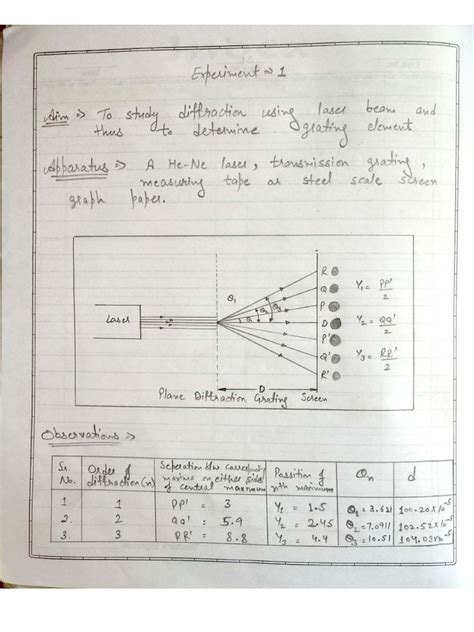 Experiment no 1
Aim => To study diffraction using laser beam and
thus to determine grating element
Apparatus => A He-Ne laser, transmission grating,
measuring tape or steel scale screen
graph paper.
Laser
θ1
θ2
θ3
θ1
R
Q
P
D
P'
Q'
R'
Y1 = PP'/2
Y2 = QQ'/2
Y3 = RR'/2
D
Plane Diffraction Grating Screen
Observations =>
Sr. No. Order of diffraction (n) Seperation b/w corresponding maxima on either side of central maximum Possition of nth maximum θn d
1. 1 PP' = 3 Y1 = 1.5 θ1 = 3.621 100.20 X 10-5
2. 2 QQ' = 5.9 Y2 = 2.45 θ2 = 7.0911 102.52 X 10-5
3. 3 RR' = 8.8 Y3 = 4.4 θ3 = 10.51 104.03 X 10-5